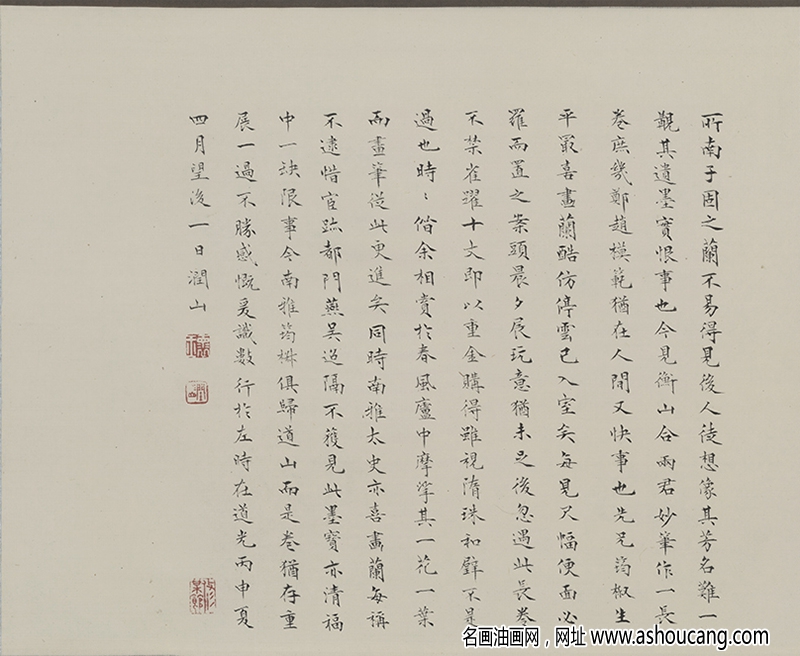 所南子固之蘭不易得見後人徒想像其芳名難一
覩其遺墨實恨事也今見衡山合兩君妙筆作一長
卷庶幾鄭趙模範猶在人間又快事也先兄筠椒生
平最喜畫蘭酷仿停雲已入室矣每見尺幅便面必
羅而置之案頭晨夕展玩意猶未足後忽遇此長卷
不禁雀躍十丈即以重金購得雖視隋珠和璧不是
過也時〻偕余相賞於春風廬中摩挲其一花一葉
而畫筆從此更進矣同時南雅太史亦喜畫蘭每稱
不逮惜宦跡都門燕吴迢隔不獲見此墨寶亦清福
中一缺限事今南雅筠椒俱歸道山而是卷猶存重
展一過不勝感慨爰識數行於左時在道光丙申夏
四月望後一日潤山
名画油画网，网址 www.ashoucang.com